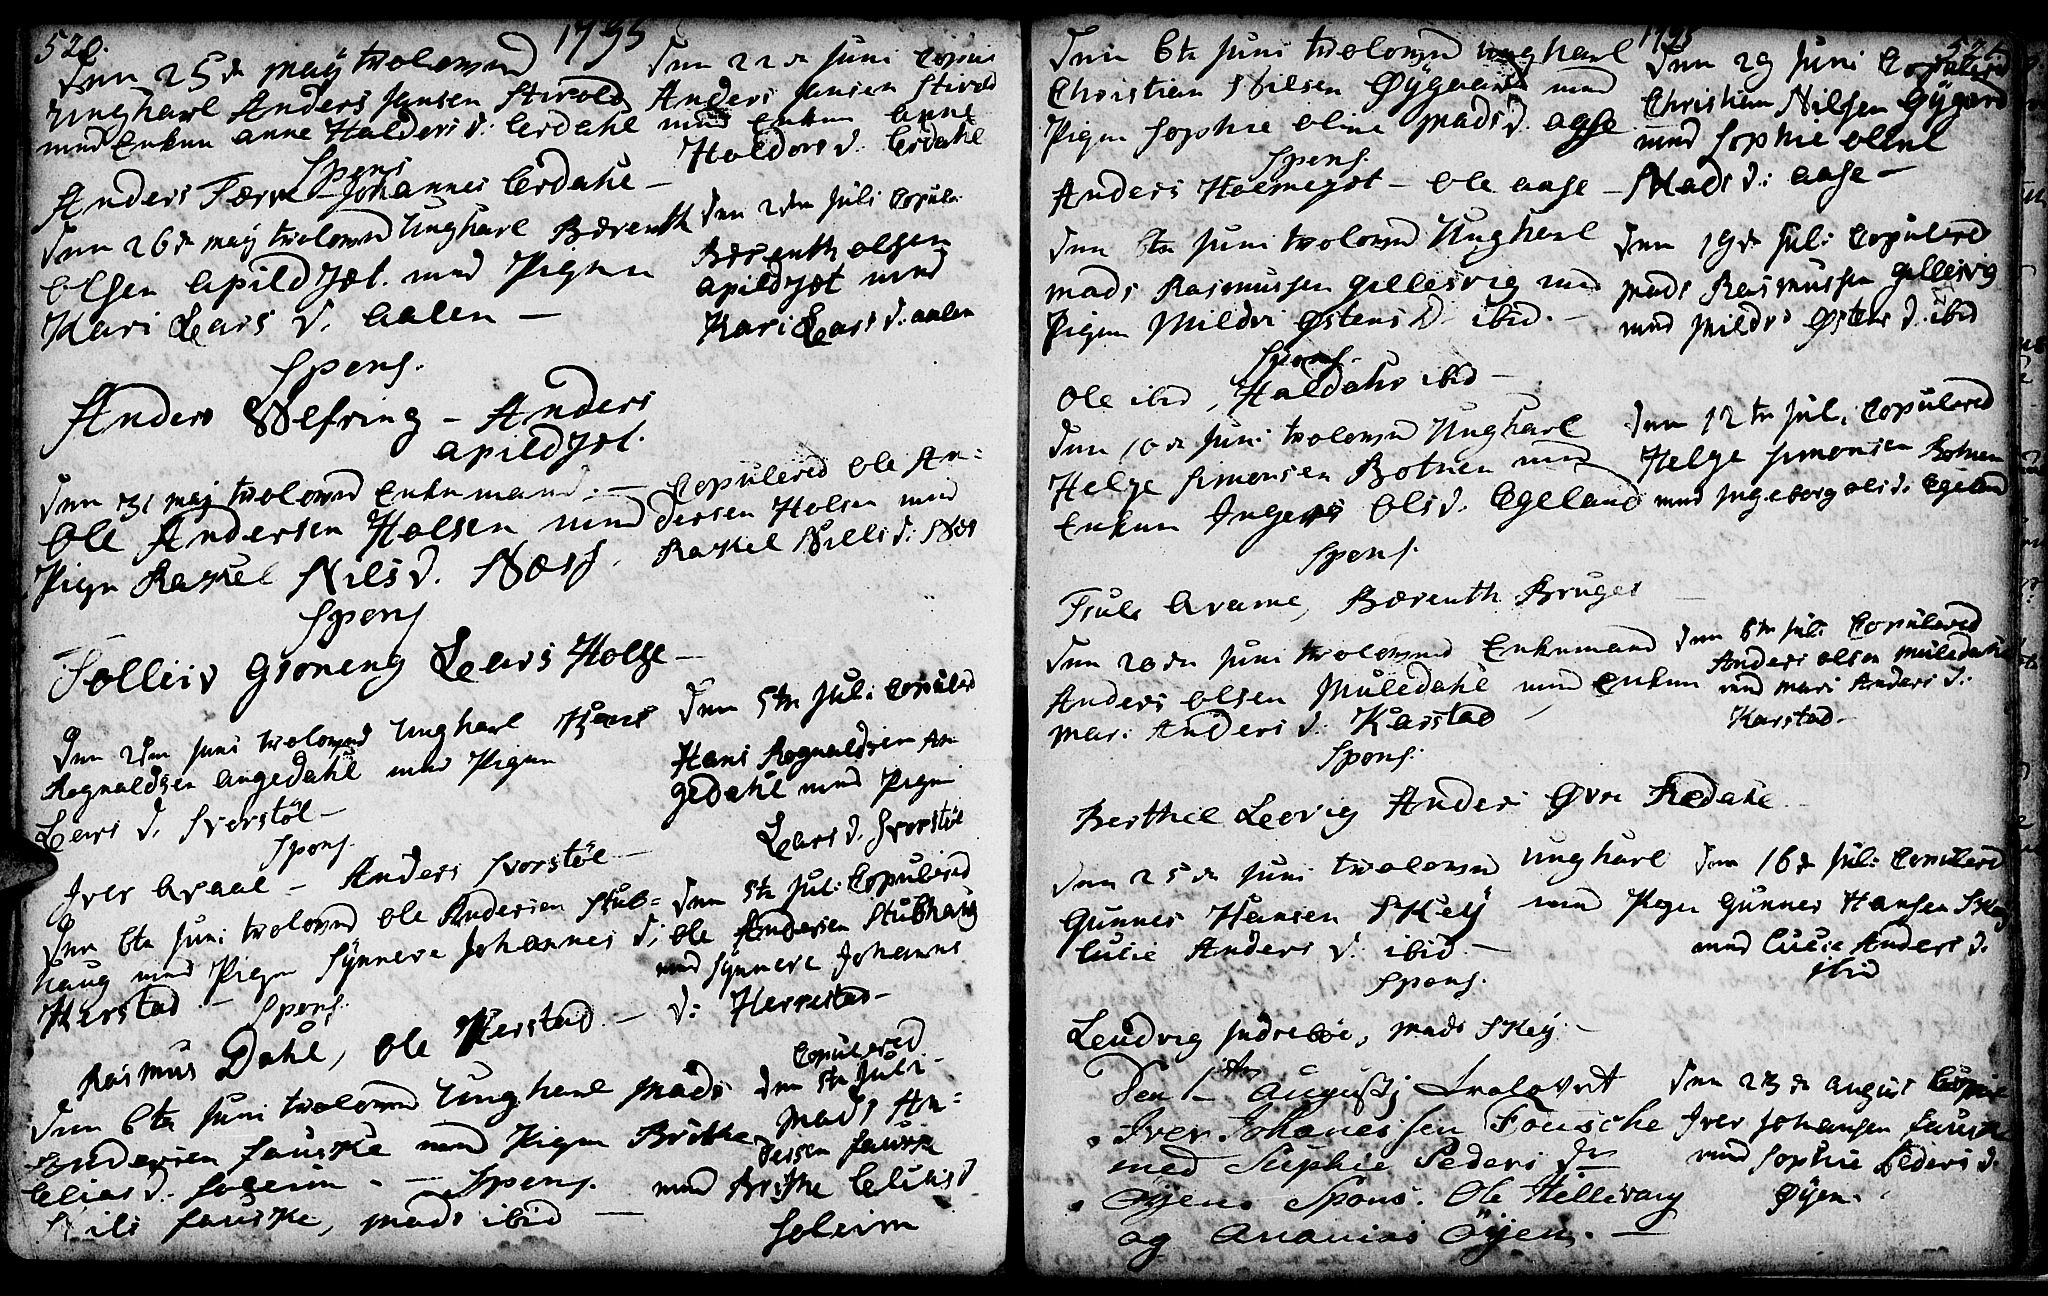 520.
1795
Den 25de may trolowed
Ungkarl Anders Jansen Stivold
med Enken anne Halders d: Erdahl
Spons
Anders Færre Johannes Erdahl —
Den 26de may trolowed Ungkarl Bærenth
Olsen Apildset. med Pigen
Kari Lars d. Aalen —
Spons.
Anders Wefring — Anders
apildset.
Den 31 may trolowed Enkemand. —
Ole Andersen Holsen med
Pigen Rakel Nils d. Næss.
Spons
Tolleiv Groneng Lars Holse —
Den 2den Juni trolowed Ungkarl Hans
Rognaldsen angedahl med Pigen
Lars d. Sverstøl —
Spons.
Iver Qvaal — Anders Svorstøl —
Den 6te Juni trolowed Ole Andersen Stub=
haug med Pigen Synneve Johannes d:
Herstad — Spons.
Rasmus Dahl, Ole Herstad —
Den 6te Juni trolowed Ungkarl mads
Andersen fauske med Pigen Brithe
Elias d. Soleim. — Spons.
Nils fauske, mads ibid —
Den 22de Juni Copul
Anders Jansen Stivold
med Enken anne
Holdors d. Erdahl
Den 2den Juli Copule
Bærenth olsen
apildset med
Kari Lars d: aalen
Copulered Ole An=
dersen Holsen med
Rakel Nills d: Næs
Den 5te Juli Copulered
Hans Rognaldsen An
gedahl med Pigen
Lars d. Svorstøl
Den 5te Juli Copulered
Ole Andersen Stubhaug
med Synneve Johannes
d: Herrestad —
Copulered
Den 5te Juli
Mads An=
dersen fauske
med Brithe Elias d
Soleim
1795
521
Den 6te Juni trolowed Ungkarl
Christian Nilsen Øygaard med
Pigen Sophie Oline Mads d. aase
Spons.
Anders Holmeqst — Ole aase —
Den 7te Juni trolowed Ungkarl
mads Rasmussen gillesvig med
Pigen Mildri Østens d ibid. —
Spons.
Ole ibid, Haldahr ibid —
Den 10de Juni trolowed Ungkarl
Helge Simonsen Botnen med
Enken Ols d. Egeland
Spons.
Qvame, Bærenth Bruget
Den 20de Juni trolowed Enkemand
Anders olsen Muledahl med Enken
mari Anders d. Karstad —
Spons.
Berthel Levig Anders Øvre Redahl
Den 25de Juni trolowed Ungkarl
Gunner Hansen Skeÿ med Pigen
Lucie Anders d. ibid —
Spons.
Leudvig Indrebøe, mads Skeÿ —
Den 1ste Augustj Trolovet
Iver Johanessen Fousche
med Suphie Peders dr
Øÿen. Spons. Ole Hellevang
og Ananias Øÿen. —
Den 29 Juni Copulered
Christian Nilsen Øygard
med Sophie oline
Mads d: aase —
Den 19de Juli Copulered
mads Rasmussen gillesvig
med Mildri Østens d. ibid
Den 12te Juli Copulered
Helge Simonsen Botnen
med Ingeborg ols d. Egeland
Den 6te Juli Copulered
Anders olsen muledahl
med mari Anders d:
Karstad —
Den 16de Juli Copulered
Gunner Hansen Skey
med Lucie Anders d.
ibid
Den 23de August Copule
Iver Johansen fauske
med Sophie Peders d.
Øyen.